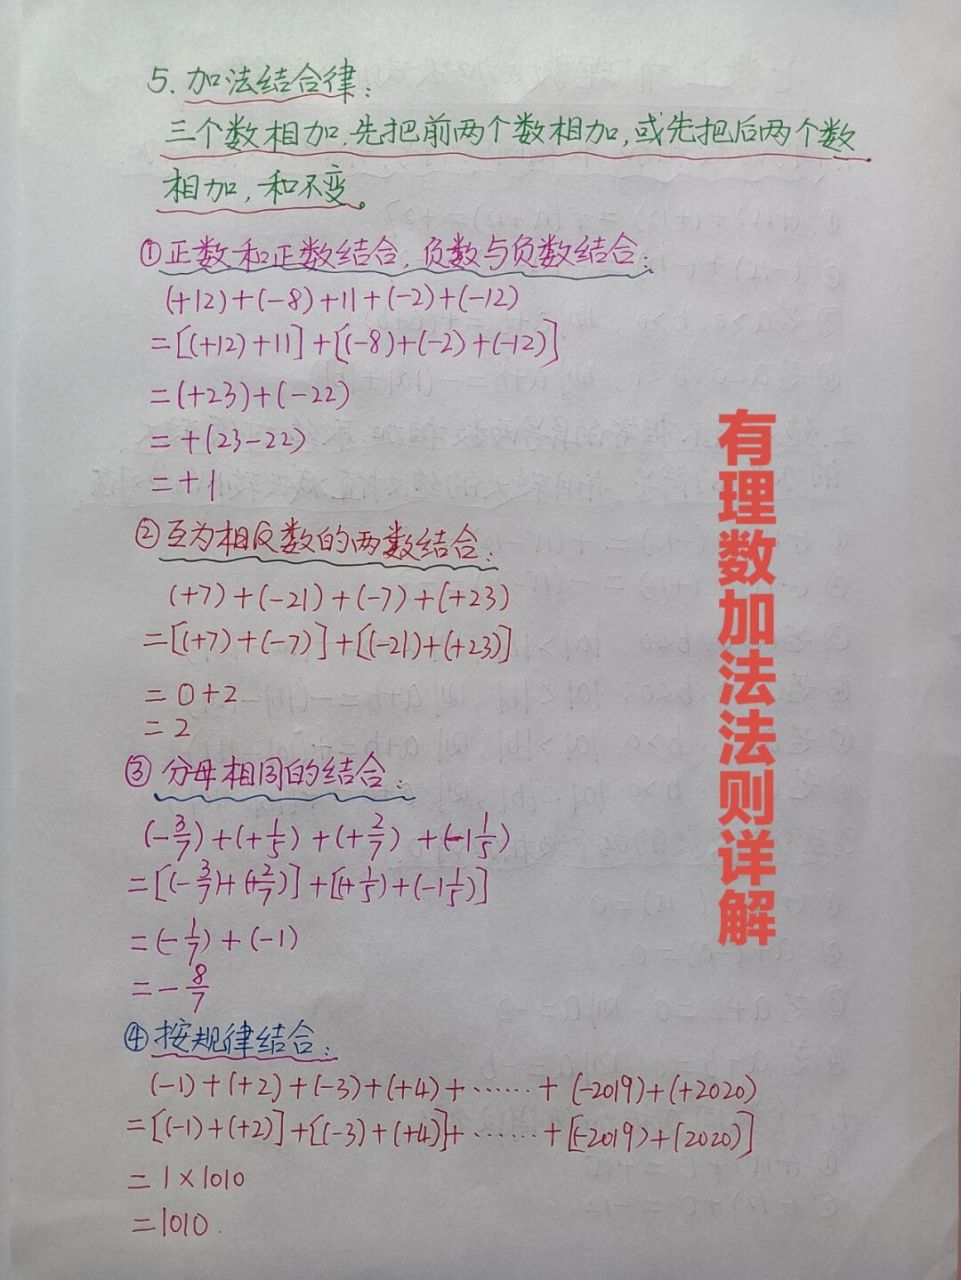 5.加法结合律:
三个数相加.先把前两个数相加,或先把后两个数
相加,和不变。
①正数和正数结合,负数与负数结合:
(+12)+(-8)+11+(-2)+(-12)
=[(+12)+11]+[(-8)+(-2)+(-12)]
=(+23)+(-22)
=+(23-22)
=+1
②互为相反数的两数结合:
(+7)+(-21)+(-7)+(+23)
=[(+7)+(-7)]+[(-21)+(+23)]
=0+2
=2
③分母相同的结合:
(-3/7)+(+1/5)+(+2/7)+(-1 1/5)
=[(-3/7)+(+2/7)]+[(+1/5)+(-1 1/5)]
=(-1/7)+(-1)
=-8/7
④按规律结合:
(-1)+(+2)+(-3)+(+4)+……+(-2019)+(+2020)
=[(-1)+(+2)]+[(-3)+(+4)]+……+[(-2019)+(2020)]
=1×1010
=1010.
有理数加法法则详解